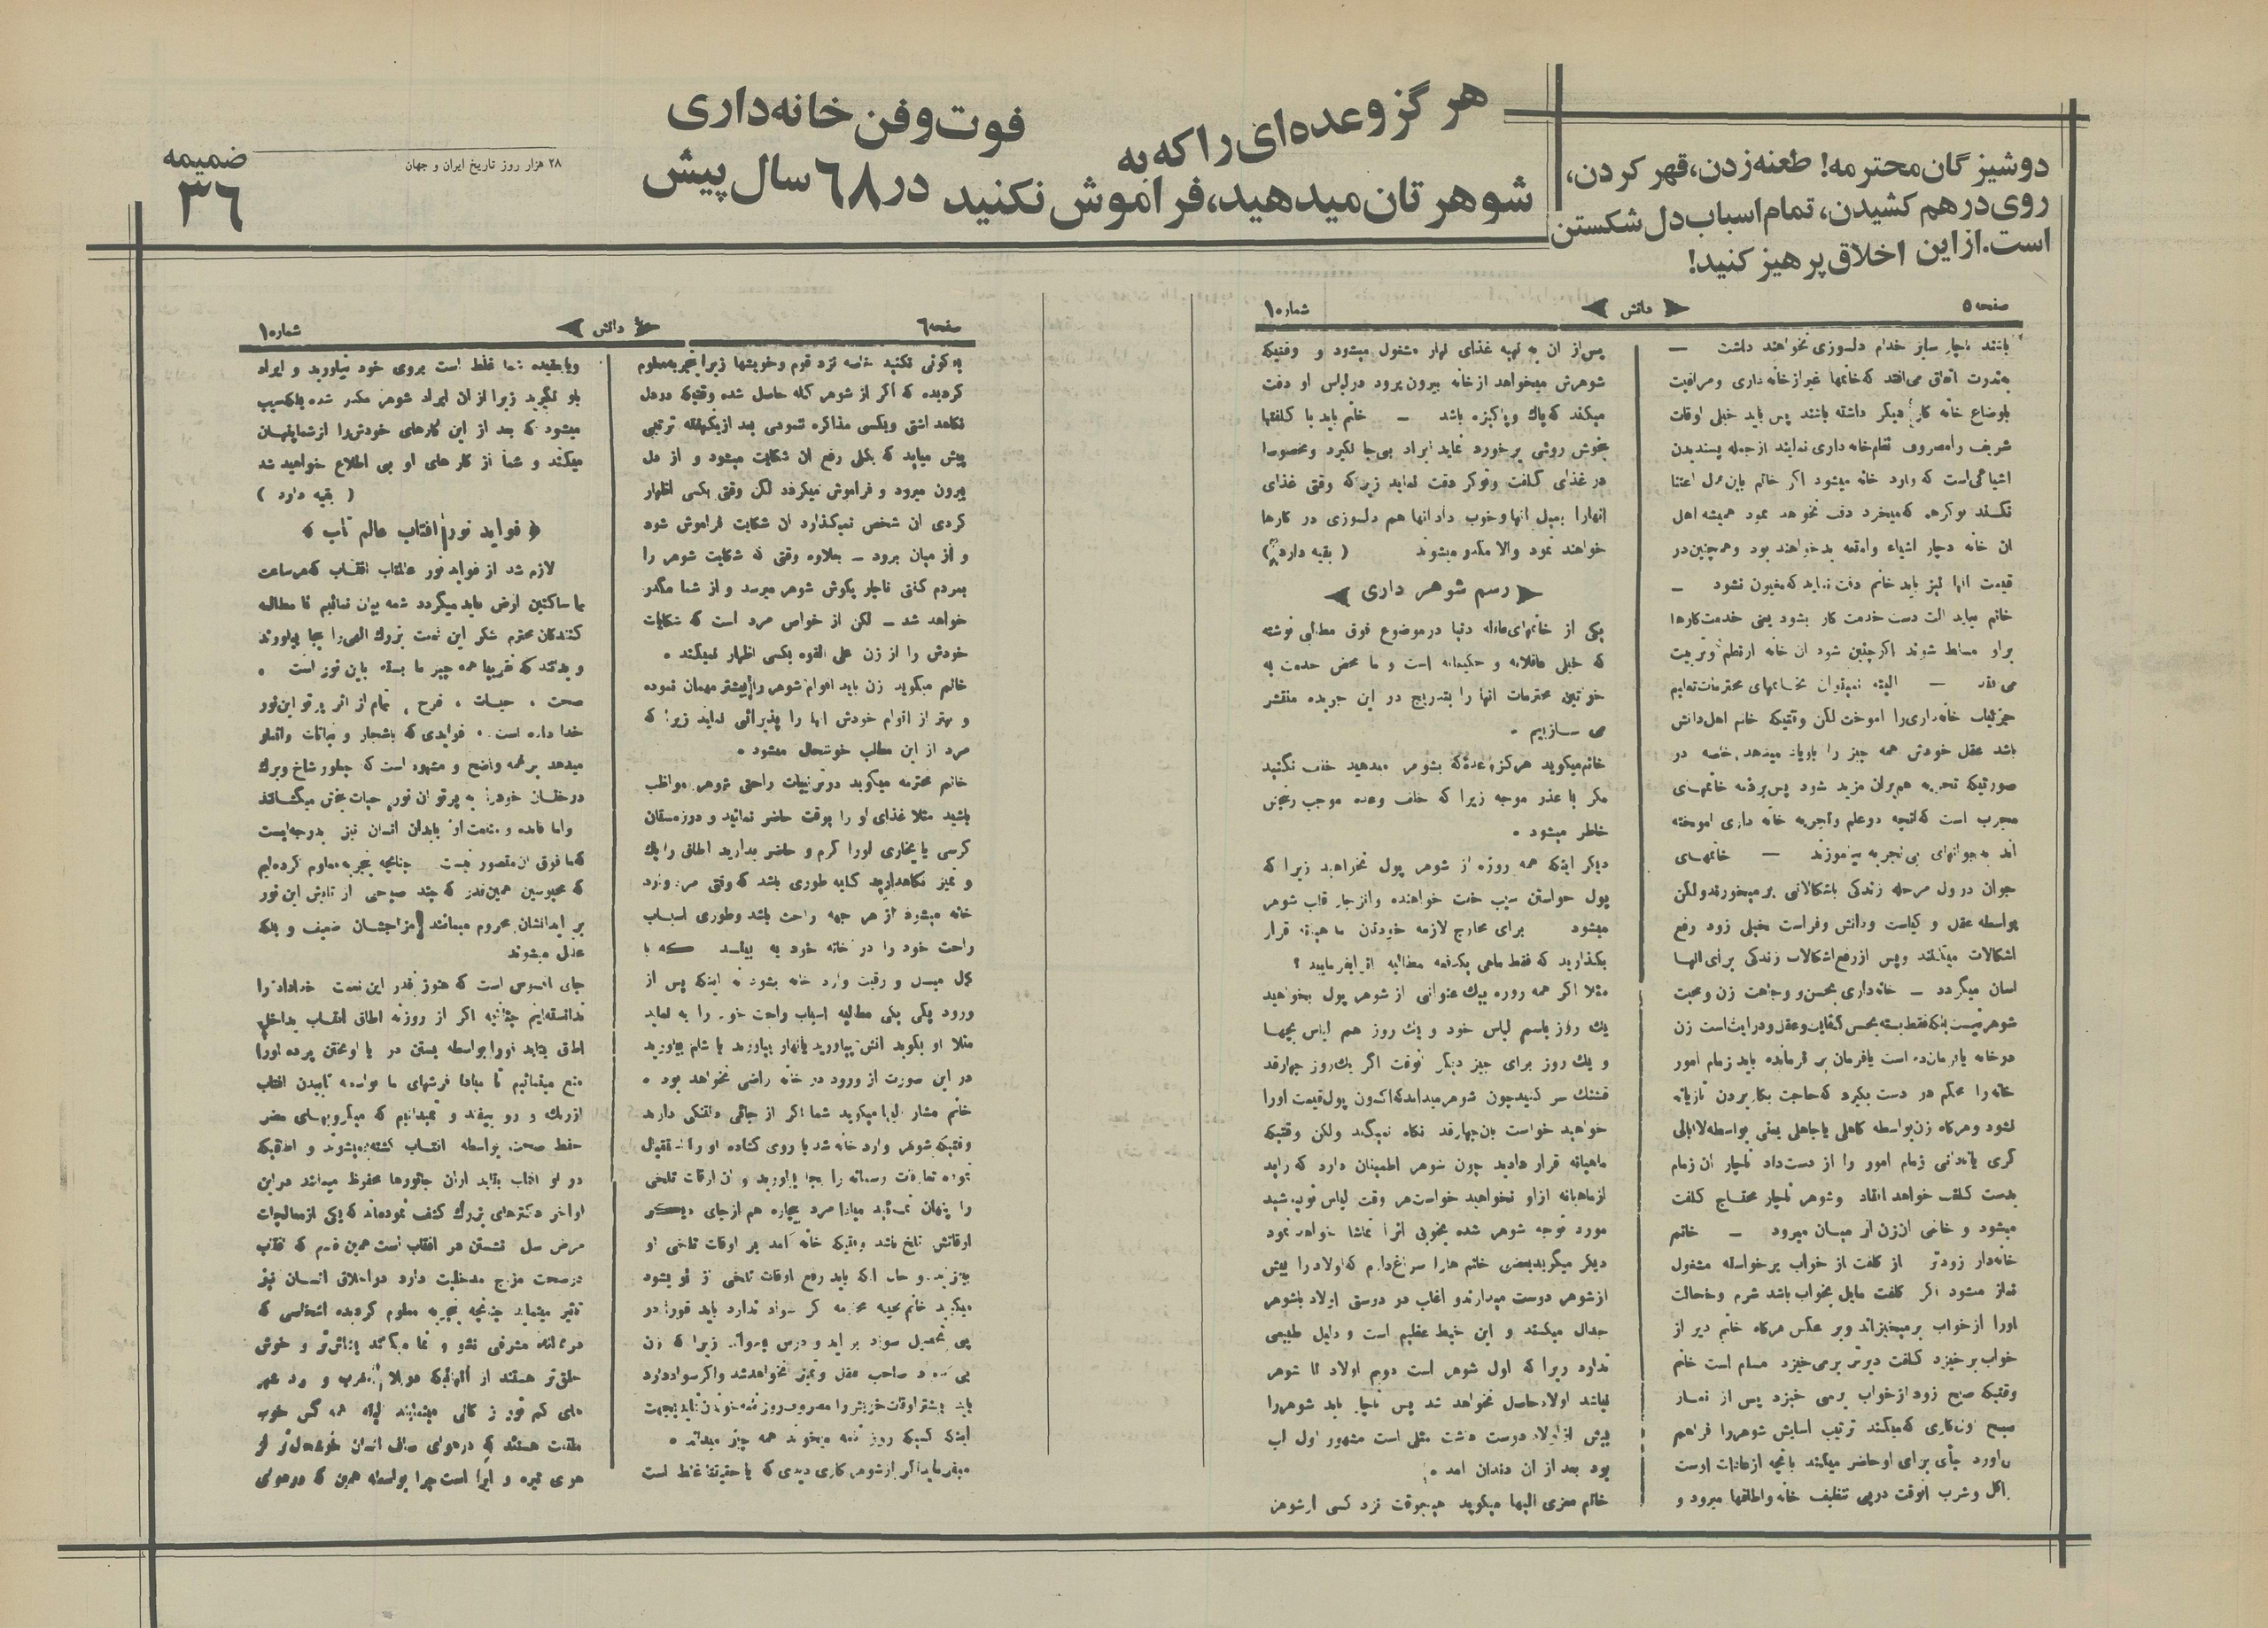 دوشیزگان محترمه! طعنه‌زدن، قهر کردن،
روی درهم کشیدن، تمام اسباب دل شکستن
است. از این اخلاق پرهیز کنید!
هر گز وعده‌ای را که به
شوهرتان میدهید، فراموش نکنید
فوت و فن خانه‌داری
در ٦٨ سال پیش
۲۸ هزار روز تاریخ ایران و جهان
ضمیمه
۳٦
صفحه ۵
دانش
شماره ۱۰
باشند ناچار سایر خدام دلسوزی نخواهند داشت —
بندرت اتفاق می‌افتد که خانمها غیر از خانه داری و مراقبت
باوضاع خانه کار دیگر داشته باشند پس باید خیلی اوقات
شریف را مصروف نظام خانه داری نمایند از جمله پسندیدن
اشیائی است که وارد خانه میشود اگر خانم باین عمل اعتنا
نکند نوکرهم که میخرد دقت نخواهد نمود همیشه اهل
ان خانه دچار اشیاء وامتعه بد خواهند بود وهمچنین در
قیمت انها نیز باید خانم دقت نماید که مغبون نشود —
خانم نباید الت دست خدمت کار بشود یعنی خدمت‌کارها
براو مسلط شوند اگر چنین شود ان خانه از نظم و تربیت
می افتد — البته نمیتوان بخانمهای محترمات تعلیم
جزئیات خانه‌داری را اموخت لکن وقتیکه خانم اهل دانش
باشد عقل خودش همه چیز را باو یاد میدهد خاصه در
صورتیکه تجربه هم بران مزید شود پس بر ذمه خانمهای
مجرب است که انچه در علم وتجربه خانه داری اموخته
اند به جوانهای بی تجربه بیاموزند — خانمهای
جوان در اول مرحله زندگی باشکالاتی بر میخورند ولکن
بواسطه عقل و کیاست ودانش وفراست خیلی زود رفع
اشکالات مینمایند وپس از رفع اشکالات زندگی برای انها
اسان میگردد — خانه داری بحسن و وجاهت زن و محبت
شوهر نیست بلکه فقط بسته بحسن کفایت وعقل ودرایت است زن
در خانه یا فرمانده است یا فرمان بر فرمانده باید زمام امور
خانه را محکم در دست بگیرد که حاجت بکار بردن تازیانه
نشود وهرگاه زن بواسطه کاهلی یا جاهلی یعنی بواسطه لاابالی
گری یا نادانی زمام امور را از دست داد ناچار ان زمام
بدست کلفت خواهد افتاد وشوهر ناچار محتاج کلفت
میشود و خانمی ان زن از میان میرود — خانم
خانه دار زودتر از کلفت از خواب برخواسته مشغول
نماز میشود اگر کلفت مایل بخواب باشد شرم وخجالت
اورا از خواب بر میخیزاند وبر عکس هرگاه خانم دیر از
خواب برخیزد کلفت دیرتر بر می خیزد مسلم است خانم
وقتیکه صبح زود از خواب برمی خیزد پس از نماز
صبح اول کاری که میکند ترتیب اسایش شوهر را فراهم
اکل وشرب انوقت در پی تنظیف خانه واطاقها میرود و
پس از ان به تهیه غذای نهار مشغول میشود و وقتیکه
شوهرش میخواهد از خانه بیرون برود در لباس او دقت
میکند که پاک وپاکیزه باشد — خانم باید با کلفتها
بخوش روشی برخورد نماید ایراد بی جا نگیرد ومخصوصا
در غذای کلفت ونوکر دقت نماید زیرا که وقتی غذای
انهارا بمیل انها وخوب داد انها هم دلسوزی در کارها
خواهند نمود والا مکدر میشوند ( بقیه دارد )
رسم شوهر داری
یکی از خانمهای عاقله دنیا در موضوع فوق مطالبی نوشته
که خیلی عاقلانه و حکیمانه است و ما محض خدمت به
خواتین محترمات انها را بتدریج در این جریده منتشر
می سازیم •
خانم میگوید هرگز وعدهٔ که بشوهر میدهید خلف نکنید
مگر با عذر موجه زیرا که خلف وعده موجب رنجش
خاطر میشود •
دیگر اینکه همه روزه از شوهر پول نخواهید زیرا که
پول خواستن سبب خفت خواهنده وانزجار قلب شوهر
میشود برای مخارج لازمه خودتان ماهیانه قرار
بگذارید که فقط ماهی یکدفعه مطالبه انرا بفرمایید ؟
مثلا اگر همه روزه بیک عنوانی از شوهر پول بخواهید
یک روز باسم لباس خود و یک روز هم لباس بچها
و یک روز برای چیز دیگر انوقت اگر یک روز چهارقد
قشنگ سر کنید چون شوهر میداند که اکنون پول قیمت اورا
خواهید خواست بان چهارقد نگاه نمیکند ولکن وقتیکه
ماهیانه قرار دادید چون شوهر اطمینان دارد که زاید
از ماهیانه از او نخواهید خواست هر وقت لباس نو پوشید
مورد توجه شوهر شده بخوبی انرا تماشا خواهد نمود
دیگر میگوید بعضی خانم ها را سراغ دارم که اولاد را بیش
از شوهر دوست میدارند و اغلب در دوستی اولاد باشوهر
جدال میکنند و این خبط عظیم است و دلیل طبیعی
ندارد زیرا که اول شوهر است دویم اولاد تا شوهر
نباشد اولاد حاصل نخواهد شد پس ناچار باید شوهر را
بیش از اولاد دوست داشت مثلی است مشهور اول لب
بود بعد از ان دندان امد •
خانم معزی الیها میگوید هیچوقت نزد کسی از شوهر
صفحه ٦
دانش
شماره ۱۰
بد گوئی نکنید خاصه نزد قوم وخویشها زیرا بتجربه معلوم
گردیده که اگر از شوهر گله حاصل شده وقتیکه در دل
نگاهداشتی وبکسی مذاکره ننمودی بعد از یکهفته ترتیبی
پیش میاید که بکلی رفع ان شکایت میشود و از دل
بیرون میرود و فراموش میگردد لکن وقتی بکسی اظهار
کردی ان شخص نمیگذارد ان شکایت فراموش شود
و از میان برود — بعلاوه وقتی که شکایت شوهر را
بمردم گفتی ناچار بگوش شوهر میرسد و از شما مکدر
خواهد شد — لکن از خواص مرد است که شکایات
خودش را از زن علی القوه بکسی اظهار نمیکند •
خانم میگوید زن باید اقوام شوهر را بیشتر مهمان نموده
و بهتر از اقوام خودش انها را پذیرائی نماید زیرا که
مرد از این مطالب خوشحال میشود •
خانم محترمه میگوید در ترتیبات راحتی شوهر مواظب
باشید مثلا غذای او را بوقت حاضر نمائید و در زمستان
کرسی یا بخاری اورا گرم و حاضر بدارید اطاق را پاک
و تمیز نگاهدارید که به طوری باشد که وقتی مرد وارد
خانه میشود از هر جهه راحت باشد وطوری اسباب
راحت خود را در خانه خود به بیند که با
کمال میل و رغبت وارد خانه بشود نه اینکه پس از
ورود یکی یکی مطالبه اسباب راحت خود را به نماید
مثلا او بگوید اتش بیاورید یا نهار بیاورید یا شام بیاورید
در این صورت از ورود در خانه راضی نخواهد بود •
خانم مشار الیها میگوید شما اگر از جائی دلتنگی دارید
وقتیکه شوهر وارد خانه شد با روی گشاده او را استقبال
نموده تعارفات رسمانه را بجا بیاورید و ان اوقات تلخی
را پنهان نمائید مبادا مرد بیچاره هم از جای دیگر
اوقاتش تلخ باشد وقتیکه خانه آمد بر اوقات تلخی او
بی تحصیل سواد بر اید و درس بخواند زیرا که زن
بی سواد صاحب عقل وتمیز نخواهد شد واگر سواد دارد
باید بیشتر اوقات خویش را مصروف روزنامه خواندن نماید بجهت
اینکه کسیکه روزنامه میخواند همه چیز میداند •
میفرماید اگر از شوهر کاری دیدی که یا حقیقتا غلط است
ویا بعقیده شما غلط است بروی خود نیاورید و ایراد
باو نگیرید زیرا از ان ایراد شوهر مکدر شده باعث
میشود که بعد از این کارهای خودش را از شما پنهان
میکند و شما از کار های او بی اطلاع خواهید شد
( بقیه دارد )
﴿ فواید نور افتاب عالم تاب ﴾
لازم شد از فواید نور عالمتاب افتاب که هر ساعت
بما ساکنین ارض عاید میگردد شمه بیان نمائیم تا مطالعه
کنندگان محترم شکر این نعمت بزرک الهی را بجا بیاورند
و بدانند که تقریبا همه چیز ما بسته باین نور است •
صحت ، حیات ، فرح ، تمام از اثر پرتو این نور
خدا داده است • فوایدی که باشجار و نباتات واثمار
میدهد بر همه واضح و مشهود است که چطور شاخ وبرک
درختان خود را به پرتو ان نور حیات بخش میکشانند
واما فایده و منفعت او بابدان انسان نیز بدرجه‌ایست
که ما فوق ان متصور نیست چنانچه بتجربه معلوم کرده‌ایم
که محبوسین همین قدر که چند صباحی از تابش این نور
بر ابدانشان محروم میمانند مزاجشان ضعیف و بلکه
علیل میشوند
جای افسوس است که هنوز قدر این نعمت خداداد را
ندانسته‌ایم چنانچه اگر از روزنه اطاق افتاب بداخل
اطاق بتابد اورا بواسطه بستن در یا اویختن پرده اورا
منع مینمائیم تا مبادا فرشهای ما بواسطه تابیدن افتاب
از رنک و رو بیفتد و نمیدانیم که میکروبهای مضر
حفظ صحت بواسطه افتاب کشته میشوند و اطاقیکه
در او افتاب بتابد از ان جانورها محفوظ میماند در این
اواخر دکترهای بزرک کشف نموده‌اند که یکی از معالجات
مرض سل نشستن در افتاب است همین قسم که افتاب
در صحت مزاج مدخلیت دارد در اخلاق انسان نیز
تاثیر مینماید چنانچه بتجربه معلوم گردیده اشخاصی که
در ممالک مشرقی نشو و نما میکنند بشاش‌تر و خوش
خلق‌تر هستند از انهائیکه در بلاد مغرب و در شهر
های کم نور زندگانی مینمایند
هوای تیره و ابر است چرا بواسطه همین که در هوای